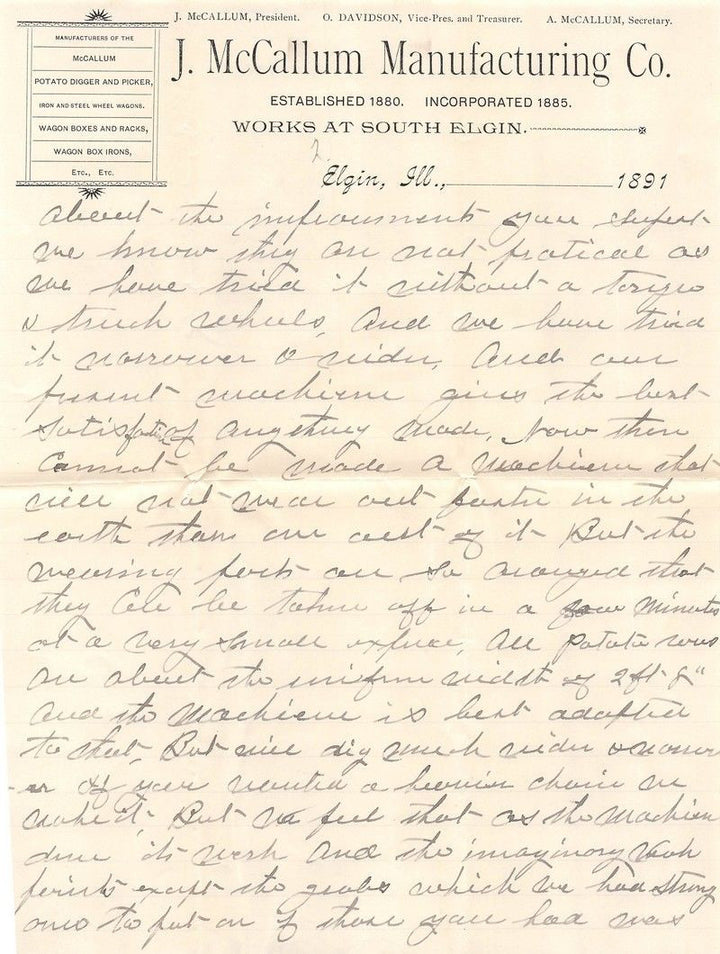 J. McCALLUM, President. O. DAVIDSON, Vice-Pres. and Treasurer. A. McCALLUM, Secretary.
MANUFACTURERS OF THE
McCALLUM
POTATO DIGGER AND PICKER,
IRON AND STEEL WHEEL WAGONS.
WAGON BOXES AND RACKS,
WAGON BOX IRONS,
ETC., ETC.
J. McCallum Manufacturing Co.
ESTABLISHED 1880. INCORPORATED 1885.
WORKS AT SOUTH ELGIN.
2
Elgin, Ill., 1891
about the improvments you
we know they are not pratical as
we have tried it without a
truck wheels, And we have tried
it narrower & wider, And our
present machiene gives the best
of anything made, Now there
Cannot be made a Machiene that
will not wear out faster in the
earth than out of it But the
wearing parts are so aranged that
they Can be taken off in a few Minutes
at a very small expence, All Potato rows
are about the uniform width of 2ft 8"
And the Machiene is best adapted
to that, But will dig much wider & narrow
er If you wanted a heavier chain we
make it, But we feel that as the Machien
done its work And the imaginary weak
points except the which we had strong
ones to put on if those you had was